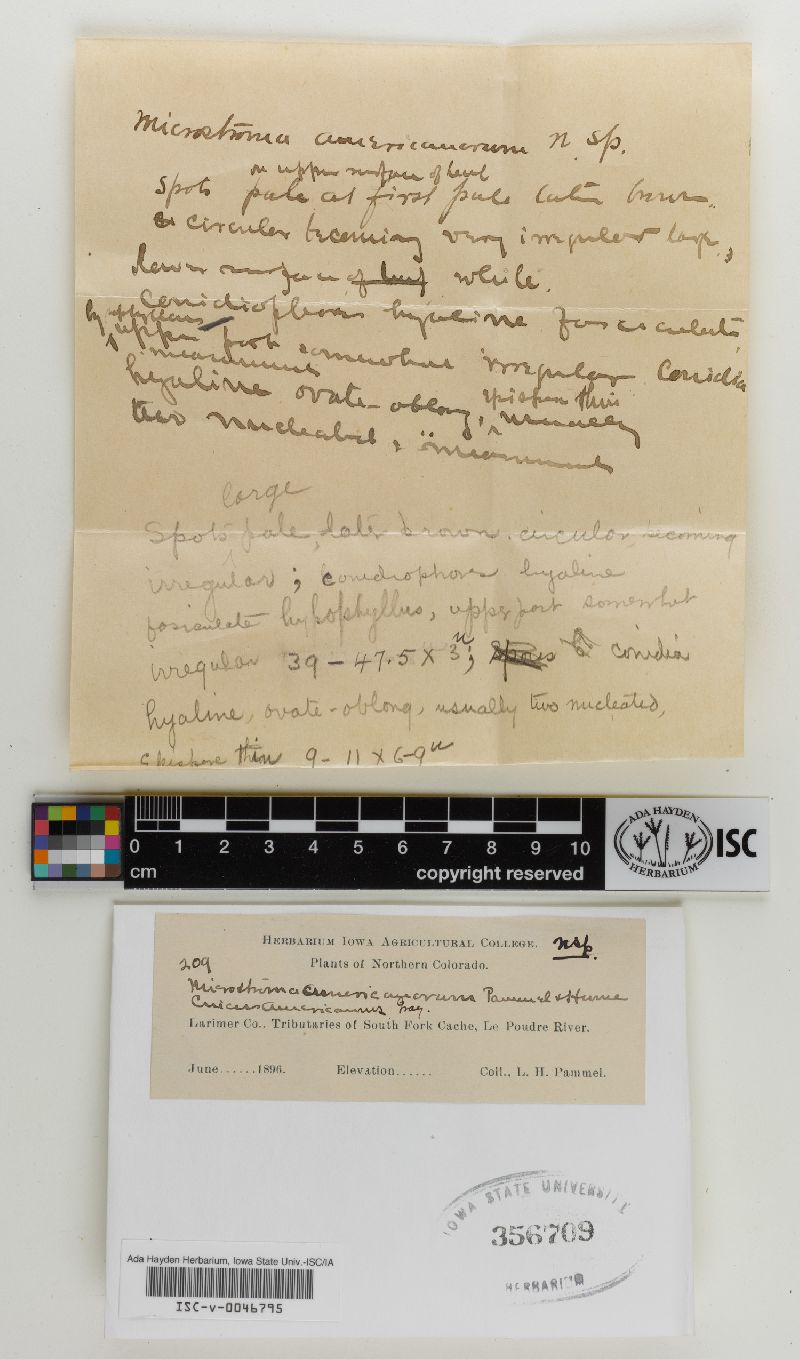 Microstroma americanorum n. sp.
on upper surface of leaf
Spots pale at first pale later brown
circular becoming very irregular large,
lower surface of leaf white.
Conidiophores hyaline fasciculate,
hypophyllous
upper part somewhat irregular Conidia
measurements
hyaline ovate-oblong, usually
epispore thin
two nucleated, measurements
large
Spots pale, later brown. circular, becoming
irregular; conidiophores hyaline
fasiculate hypophyllus, upper part somewhat
irregular 39 - 47.5 X 3u; conidia
hyaline, ovate-oblong, usually two nucleated,
epispore thin 9 - 11 X 6-9u
0 1 2 3 4 5 6 7 8 9 10
cm
copyright reserved
ADA HAYDEN
HERBARIUM
ISC
HERBARIUM IOWA AGRICULTURAL COLLEGE. nsp.
209
Plants of Northern Colorado.
Microstroma americanorum Pammel & Hume
Cnicus americanus Gray.
Larimer Co., Tributaries of South Fork Cache, Le Poudre River.
June......1896. Elevation...... Coll., L. H. Pammel.
IOWA STATE UNIVERSITY
356709
HERBARIUM
Ada Hayden Herbarium, Iowa State Univ.-ISC/IA
ISC-v-0046795